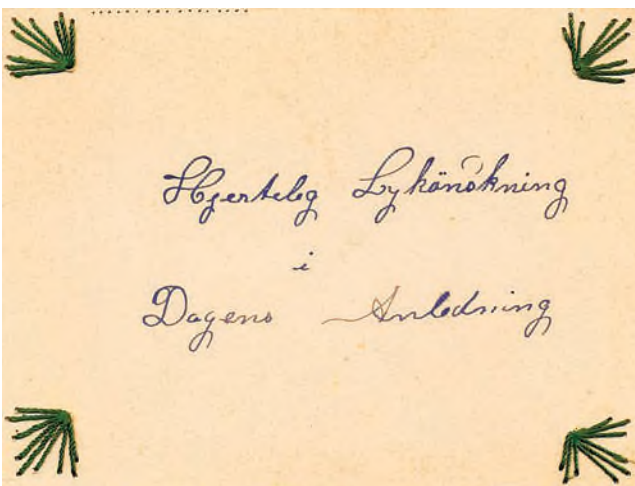 Hjerteleg Lykönskning
i
Dagens Anledning